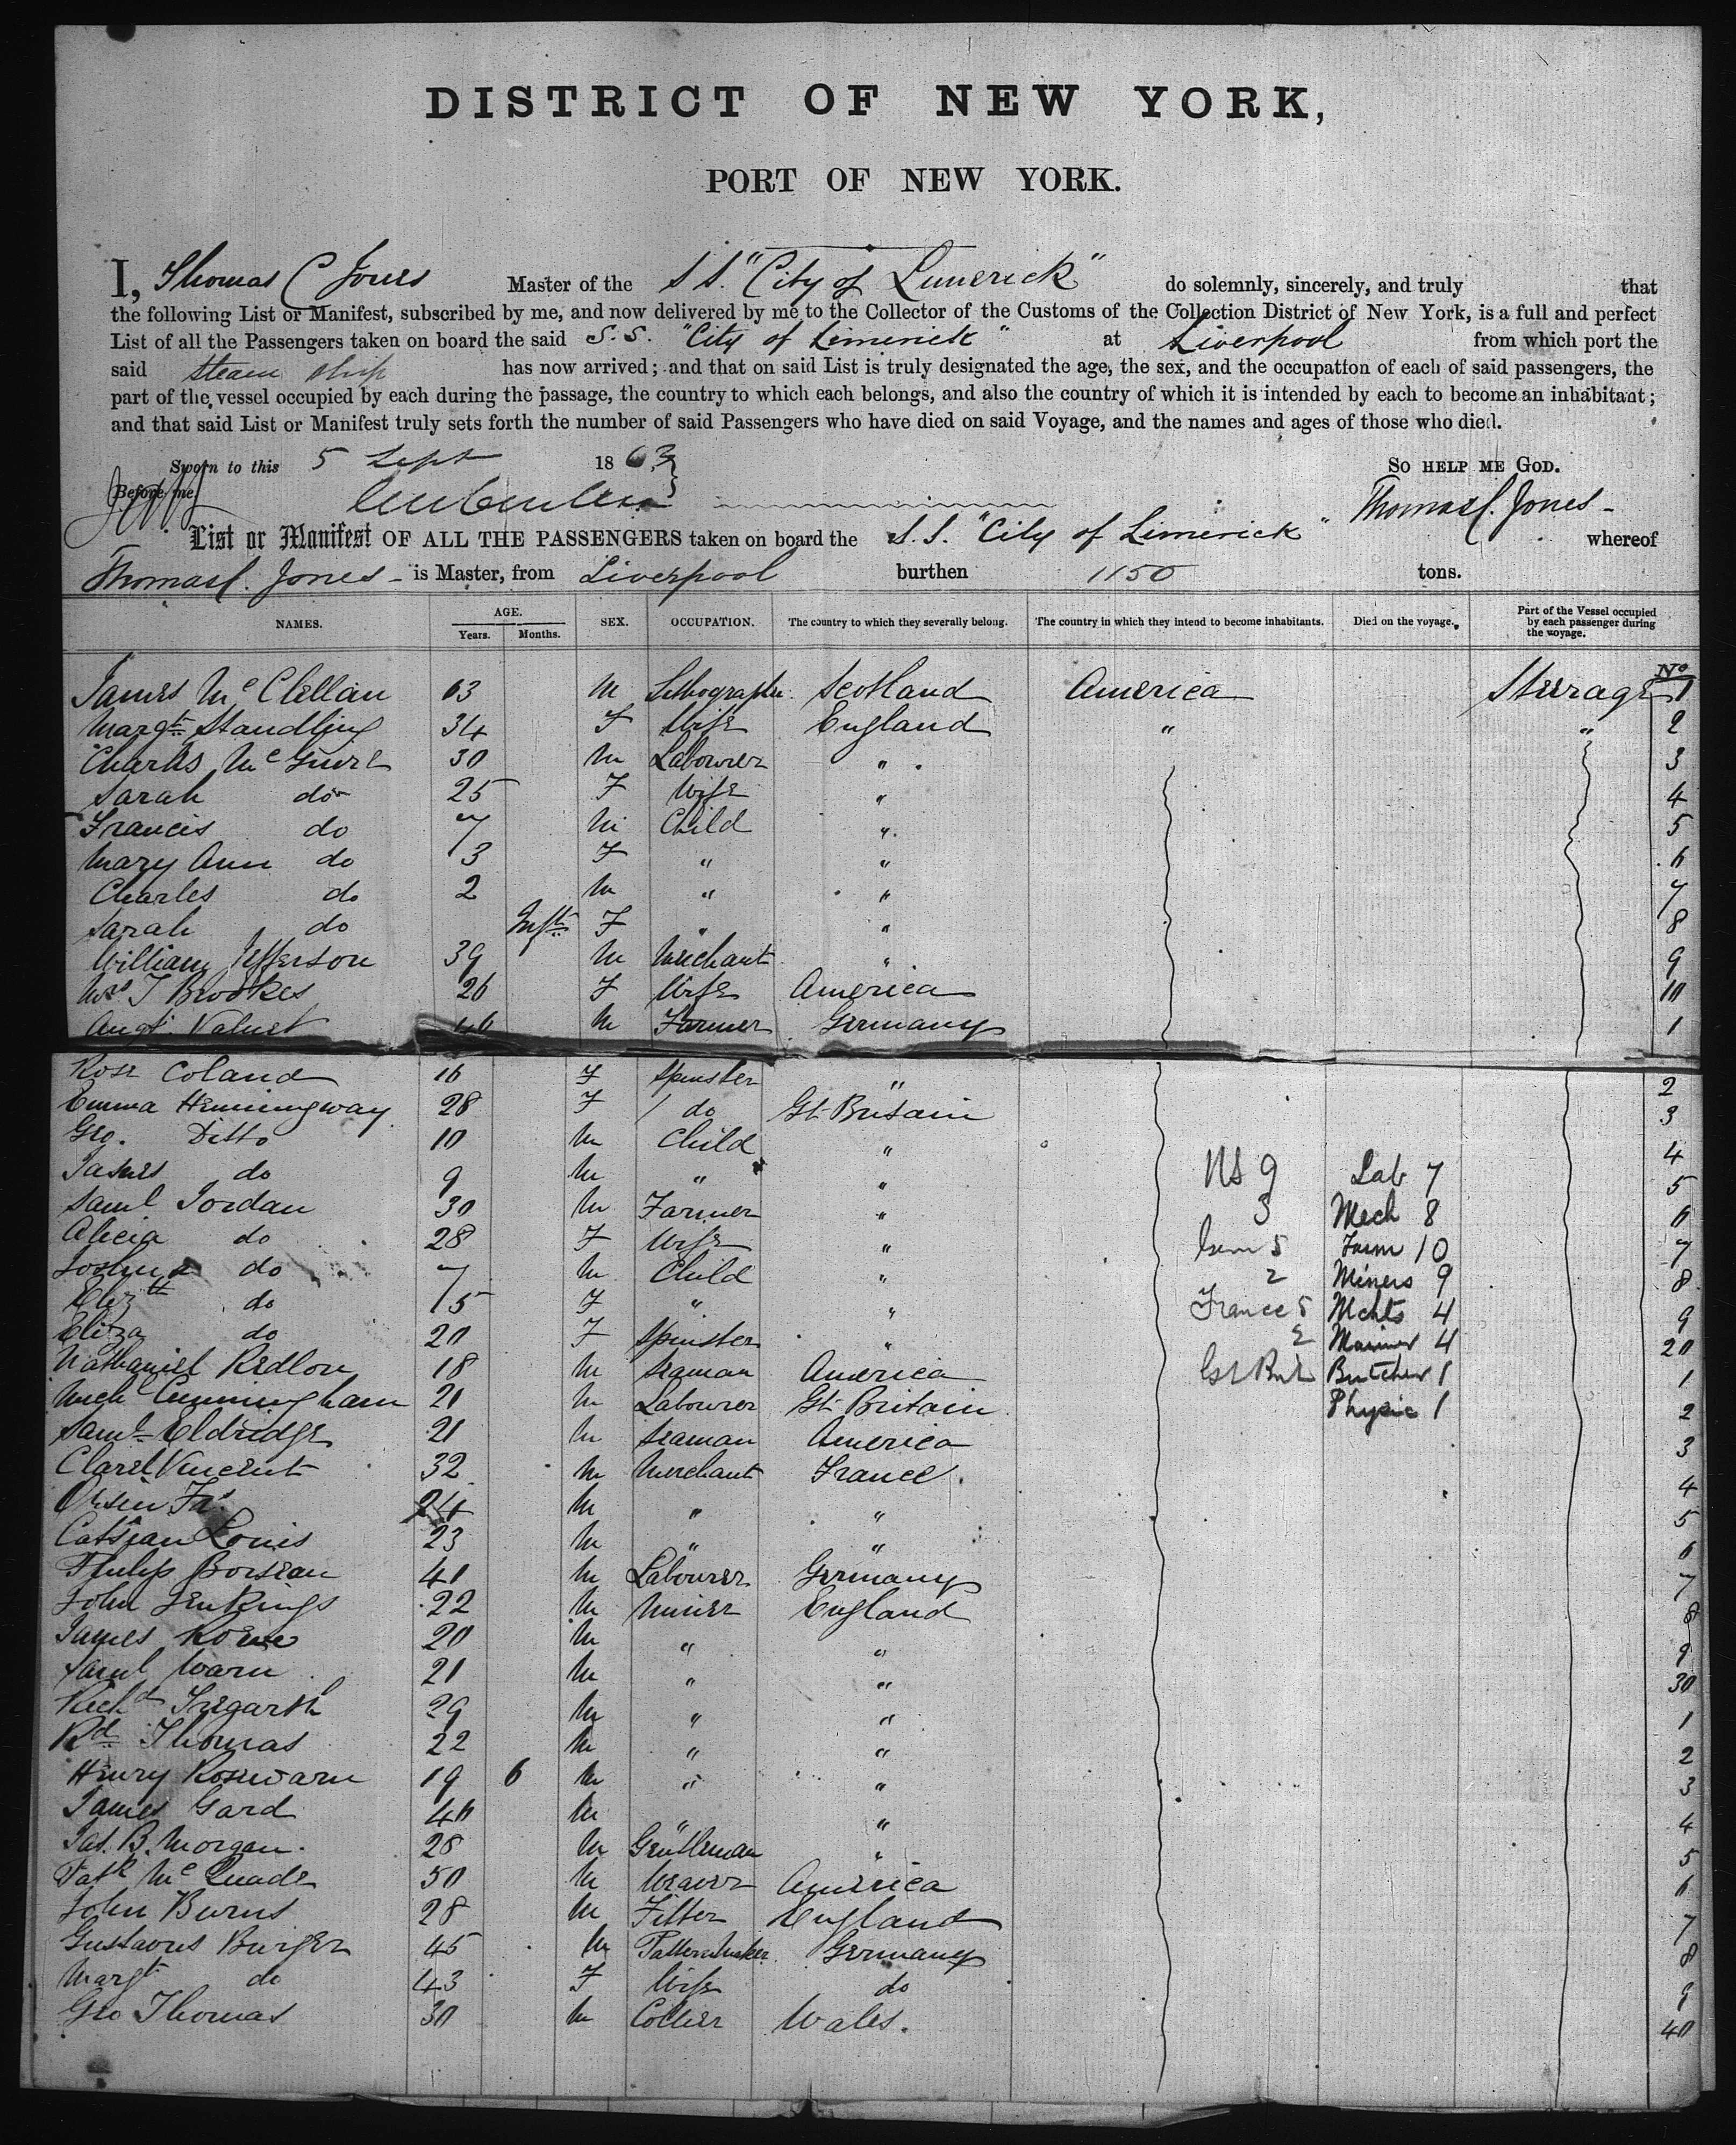 DISTRICT OF NEW YORK,
PORT OF NEW YORK.
I, Thomas C Jones Master of the S S. "City of Limerick" do solemnly, sincerely, and truly that
the following List or Manifest, subscribed by me, and now delivered by me to the Collector of the Customs of the Collection District of New York, is a full and perfect
List of all the Passengers taken on board the said S. S. "City of Limerick" at Liverpool from which port the
said steam ship has now arrived; and that on said List is truly designated the age, the sex, and the occupatton of each of said passengers, the
part of the vessel occupied by each during the passage, the country to which each belongs, and also the country of which it is intended by each to become an inhabitant;
and that said List or Manifest truly sets forth the number of said Passengers who have died on said Voyage, and the names and ages of those who died.
Sworn to this 5 Sept 1863 SO HELP ME GOD.
Before me Thomas C. Jones
List or Manifest OF ALL THE PASSENGERS taken on board the S. S. "City of Limerick" whereof
Thomas C. Jones is Master, from Liverpool burthen 1150 tons.
NAMES. AGE. Years. Months. SEX. OCCUPATION. The country to which they severally belong. The country in which they intend to become inhabitants. Died on the voyage. Part of the Vessel occupied by each passenger during the voyage.
No
James McClellan 63 M Lithographer Scotland America Steerage 1
Margt Standling 34 F Wife England " " 2
Charles McGuire 30 M Labourer " 3
Sarah do 25 F Wife " 4
Francis do 7 M Child " 5
Mary Ann do 3 F " " 6
Charles do 2 M " " 7
Sarah do Inft F " " 8
William Jefferson 39 M Merchant " 9
Mrs J Brookes 26 F Wife America 10
Augt. 46 M Farmer Germany 1
Rose Coland 16 F Spinster " 2
Emma Hemingway 28 F do Gt Britain 3
Geo. Ditto 10 M Child " 4
James do 9 M " " 5
Saml Jordan 30 M Farmer " 6
Alicia do 28 F Wife " 7
Joshua do 7 M Child " 8
Elizth do 5 F " " 9
Eliza do 20 F Spinster " 20
Nathaniel Redlon 18 M Seaman America 1
Mich Cunningham 21 M Labourer Gt Britain 2
Saml Eldridge 21 M Seaman America 3
Claret Vincent 32 M Merchant France. 4
24 M " " 5
Louis 23 M " " 6
Philip 41 M Labourer Germany 7
John Jenkings 22 M Miner England 8
James Rowe 20 M " " 9
Saml Warn 21 M " " 30
Richd Tregarth 29 M " " 1
Rd Thomas 22 M " " 2
Henry Rosewarn 19 6 M " " 3
James Gard 46 M " " 4
Jas. B. Morgan 28 M Gentleman " 5
Patk McQuade 50 M Weaver America 6
John Burns 28 M Fitter England 7
Gustavus Burger 45 M Patternmaker Germany 8
Margt do 43 F Wife do 9
Geo Thomas 30 M Collier Wales. 40
US 9 Lab 7
3 Mech 8
Germ 5 Farm 10
2 Miners 9
France 5 Mchts 4
2 Mariner 4
Gt Brit Butcher 1
Physic 1